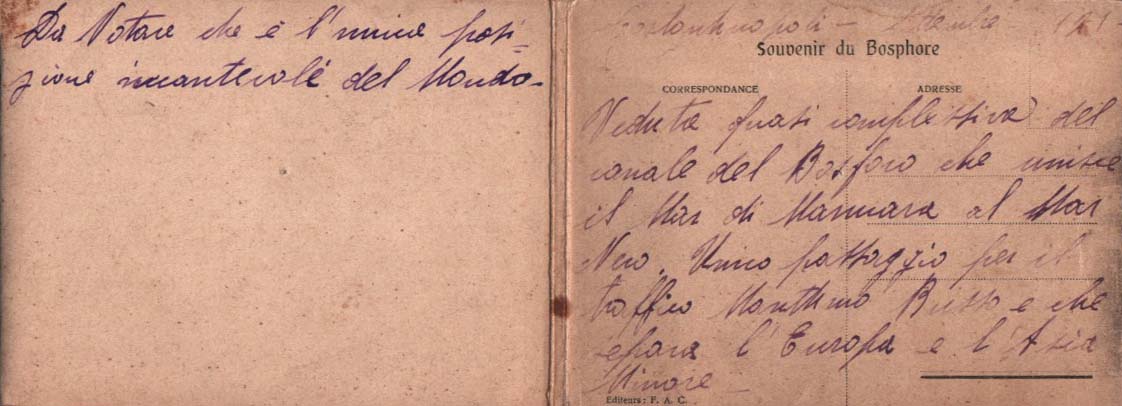 Da Notare che è l'unica posi-
zione incantevole del Mondo-
Costantinopoli -
Souvenir du Bosphore
CORRESPONDANCE
ADRESSE
Veduta quasi complessiva del
canale del Bosforo che unisce
il Mar di Marmara al Mar
Nero. Unico passaggio per il
traffico Maritimo Russo e che
separa l'Europa e l'Asia
Minore -
Editeurs: F. A. C.